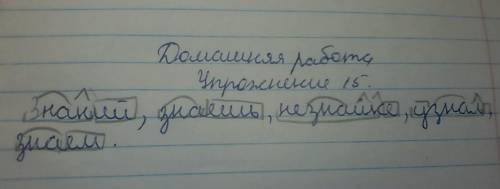 Домашняя работа
Упражнение 15.
Знакий, знаешь, незнайка, узнал,
знаем.